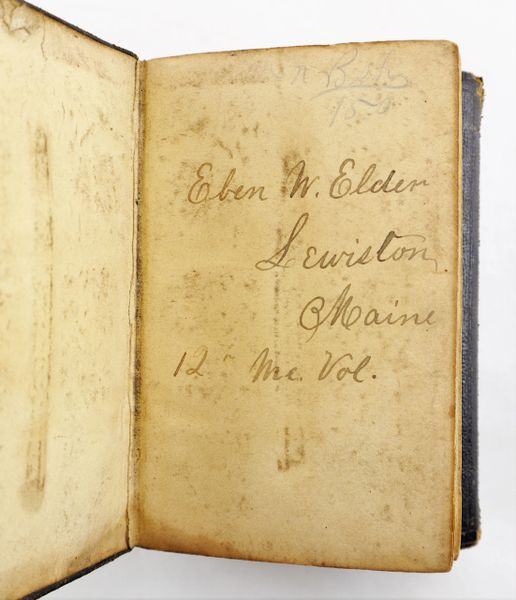 150
Eben W. Elder
Lewiston
Maine
12 Me. Vol.